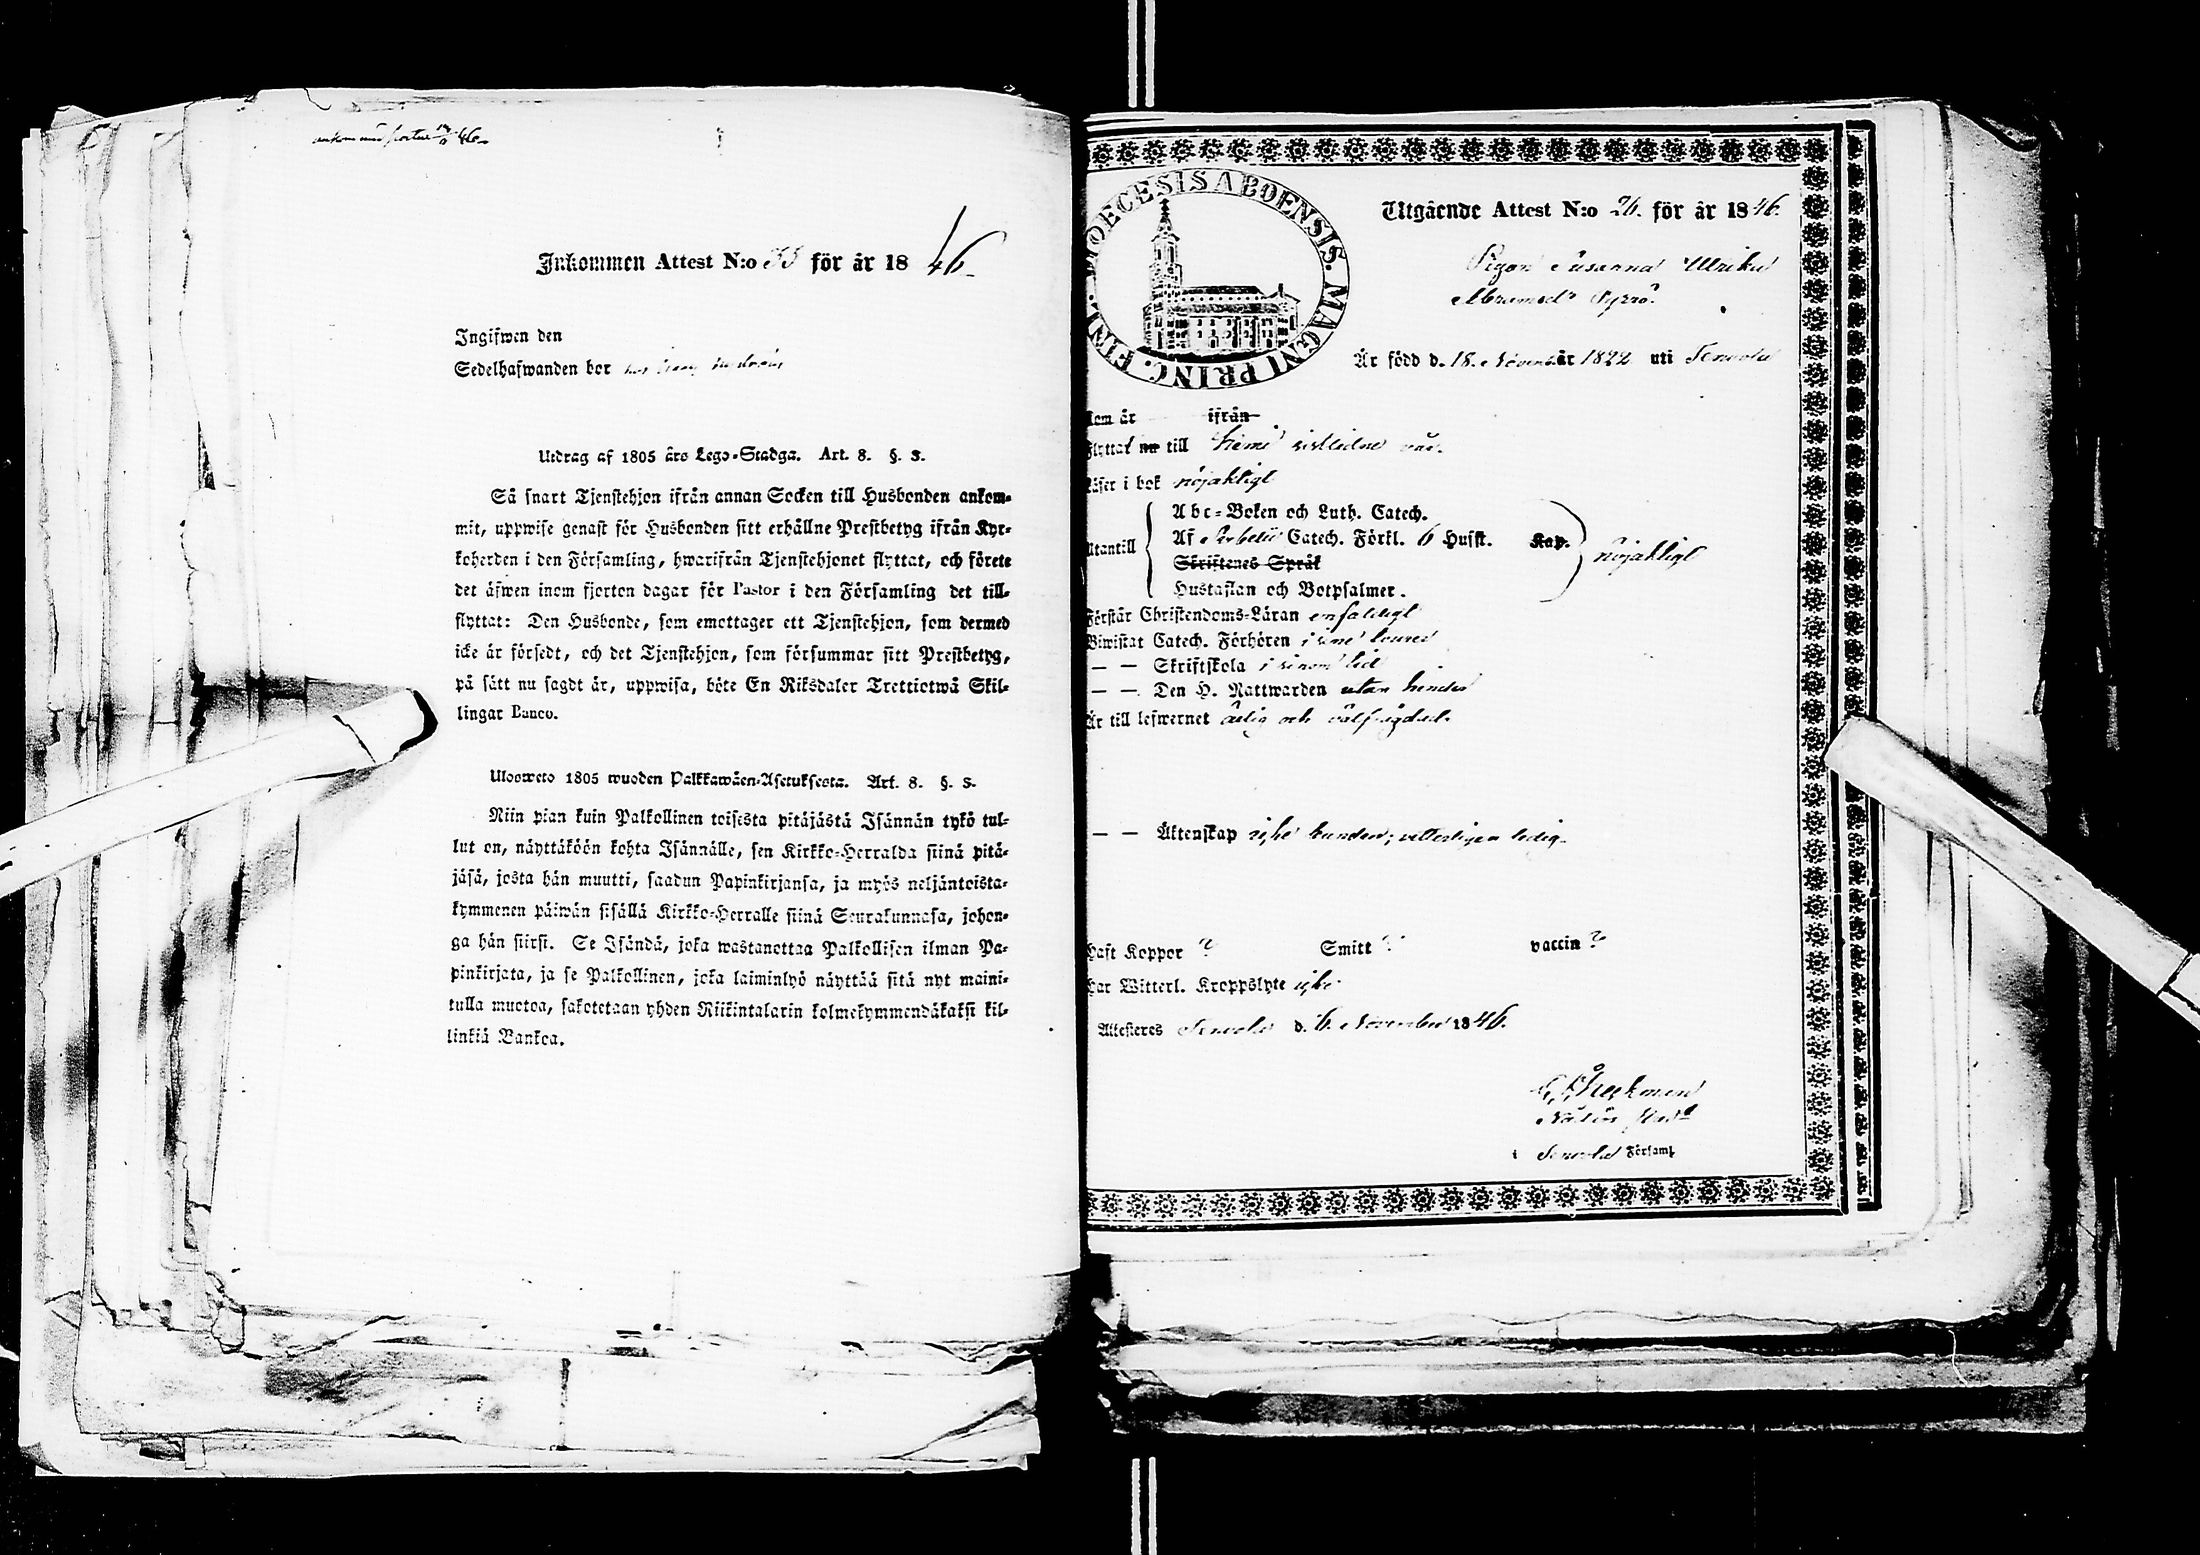 Inkommen Attest N:o 33 för år 18 46
Ingifwen den
Sedelhafwanden bor
Utdrag af 1805 års Lego-Stadga. Art. 8. §. 3.
Så snart Tjenstehjon ifrån annan Socken till Husbonden ankom-
mit, uppwise genast för Husbonden sitt erhållne Prestbetyg ifrån Kyr-
koherden i den Församling, hwarifrån Tjenstehjonet flyttat, och förete
det äfwen inom fjorton dagar för Pastor i den Församling det till-
flyttat: Den Husbonde, som emottager ett Tjenstehjon, som dermed
icke är försedt, och det Tjenstehjon, som försummar sitt Prestbetyg,
på sätt nu sagdt är, uppwisa, böte En Riksdaler Trettiotwå Skil-
lingar Banco.
Ulosweto 1805 wuoden Palkkawäen-Asetuksesta. Art. 8. §. 3.
Niin pian kuin Palkollinen toisesta pitäjästä Isännän tykö tul-
lut on, näyttäköön kohta Isännälle, sen Kirkko-Herralda siinä pitä-
jäsä, josta hän muutti, saadun Papinkirjansa, ja myös neljäntoista-
kymmenen päiwän sisällä Kirkko-Herralle siinä Seurakunnasa, johon-
ga hän siirsi. Se Isändä, joka wastanottaa Palkollisen ilman Pa-
pinkirjata, ja se Palkollinen, joka laiminlyö näyttää sitä nyt maini-
tulla muotoa, sakotetaan yhden Riikintalarin kolmekymmendäkaksi kil-
linkiä Bankoa.
DIOECESIS ABOENSIS. MAGNI PRINC. FINL.
Utgående Attest N:o 26. för år 1846.
Pigan Susanna Ulrika
Abramsdr
Är född d. 18. November år 1822 uti Tenvola
kom år ifrån
Flyttat nu till Kimi sistledne
Läser i bok nöjaktigt
Abc-Boken och Luth. Catech.
Utantill Af Svebelii Catech. Förkl. 6 Husst. Kap. nöjaktigt
Skriftenes Språk
Hustaflan och Botpsalmer.
Förstår Christendoms-Läran enfaldigt
Biwistat Catech. Förhören i sine
— — Skriftskola i sinom tid
— — Den H. Nattwarden utan hinder
Är till lefwernet ärlig och välfrägdad.
— — Äktenskap icke bunden; vitterligen ledig.
Haft Koppor ? Smitt ? vaccin ?
Har Witterl. Kroppslyte icke
Attesteres Tenvola d. 6. November 1846.
i Tenvola Församl